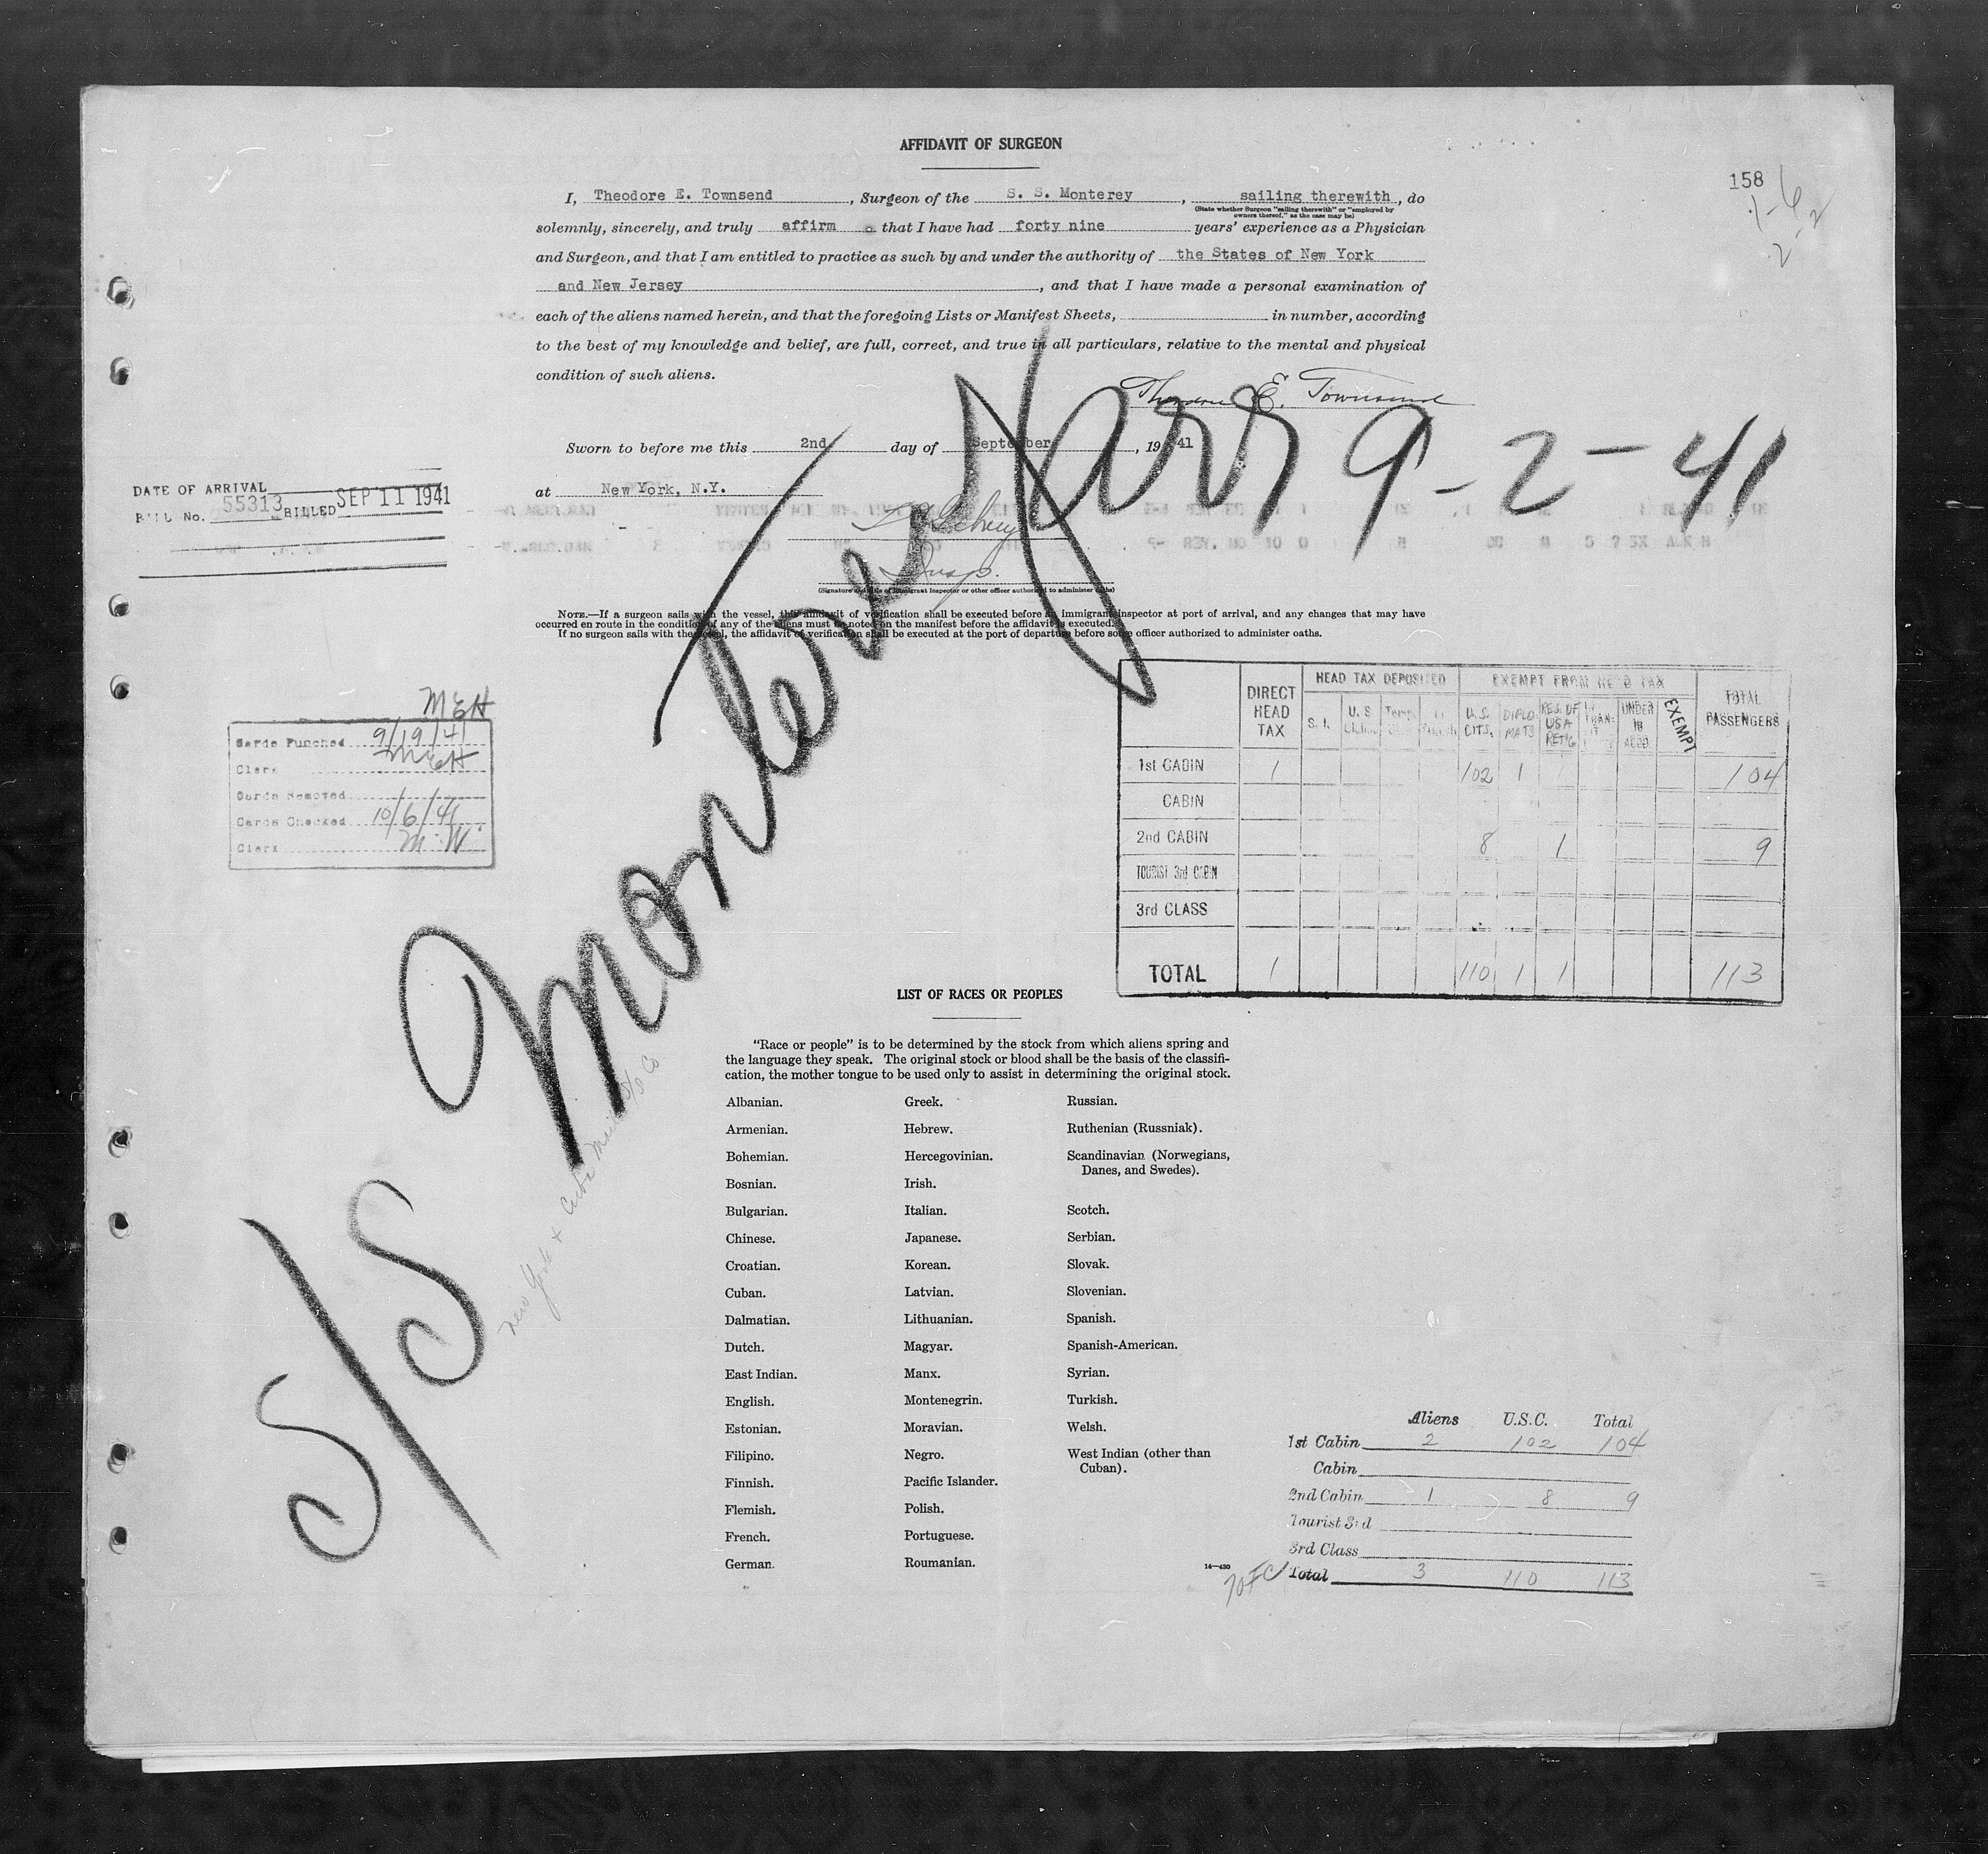 AFFIDAVIT OF SURGEON
158
I, Theodore E. Townsend, Surgeon of the S. S. Monterey, sailing therewith, do
(State whether Surgeon "sailing therewith" or "employed by owners thereof," as the case may be)
solemnly, sincerely, and truly affirm that I have had forty nine years' experience as a Physician
and Surgeon, and that I am entitled to practice as such by and under the authority of the States of New York
and New Jersey, and that I have made a personal examination of
each of the aliens named herein, and that the foregoing Lists or Manifest Sheets, in number, according
to the best of my knowledge and belief, are full, correct, and true in all particulars, relative to the mental and physical
condition of such aliens.
Theodore E. Townsend
Sworn to before me this 2nd day of September, 1941
at New York, N.Y.
Insp.
(Signature and title of Immigrant Inspector or other officer authorized to administer oaths)
NOTE.—If a surgeon sails with the vessel, this affidavit of verification shall be executed before an immigrant inspector at port of arrival, and any changes that may have
occurred en route in the condition of any of the aliens must be noted on the manifest before the affidavit is executed.
If no surgeon sails with the vessel, the affidavit of verification shall be executed at the port of departure before some officer authorized to administer oaths.
DATE OF ARRIVAL
BILL No. 55313 BILLED SEP 11 1941
S/S Monterey
Arr 9-2-41
New York & Cuba Mail S/S Co
MEH
Cards Punched 9/19/41
Clerk MEH
Cards Removed
Cards Checked 10/6/41
Clerk M.W.
DIRECT HEAD TAX HEAD TAX DEPOSITED EXEMPT FROM HEAD TAX TOTAL PASSENGERS
S. I. U. S. U. S. CITS. DIPLOMATS RES. OF USA RET'G UNDER 16 EXEMPT
1st CABIN 1 102 1 104
CABIN
2nd CABIN 8 1 9
TOURIST 3rd CABIN
3rd CLASS
TOTAL 1 110 1 1 113
LIST OF RACES OR PEOPLES
"Race or people" is to be determined by the stock from which aliens spring and
the language they speak. The original stock or blood shall be the basis of the classifi-
cation, the mother tongue to be used only to assist in determining the original stock.
Albanian.
Armenian.
Bohemian.
Bosnian.
Bulgarian.
Chinese.
Croatian.
Cuban.
Dalmatian.
Dutch.
East Indian.
English.
Estonian.
Filipino.
Finnish.
Flemish.
French.
German.
Greek.
Hebrew.
Hercegovinian.
Irish.
Italian.
Japanese.
Korean.
Latvian.
Lithuanian.
Magyar.
Manx.
Montenegrin.
Moravian.
Negro.
Pacific Islander.
Polish.
Portuguese.
Roumanian.
Russian.
Ruthenian (Russniak).
Scandinavian (Norwegians,
Danes, and Swedes).
Scotch.
Serbian.
Slovak.
Slovenian.
Spanish.
Spanish-American.
Syrian.
Turkish.
Welsh.
West Indian (other than
Cuban).
14—430
Aliens U.S.C. Total
1st Cabin 2 102 104
Cabin
2nd Cabin 1 8 9
Tourist 3rd
3rd Class
Total 3 110 113